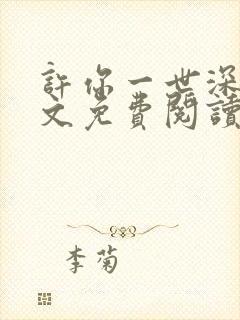 許你一世深
文免費閱讀
李菊